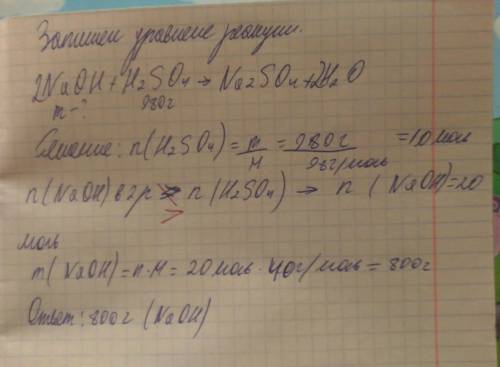 Запишем уравнение реакции.
2NaOH + H2SO4 → Na2SO4 + 2H2O
m - ? 980г
Решение: n(H2SO4) = m/M = 980г/98г/моль = 10 моль
n(NaOH) в 2р > n(H2SO4) → n(NaOH) = 20
моль
m(NaOH) = n·M = 20 моль · 40г/моль = 800г
Ответ: 800г (NaOH)